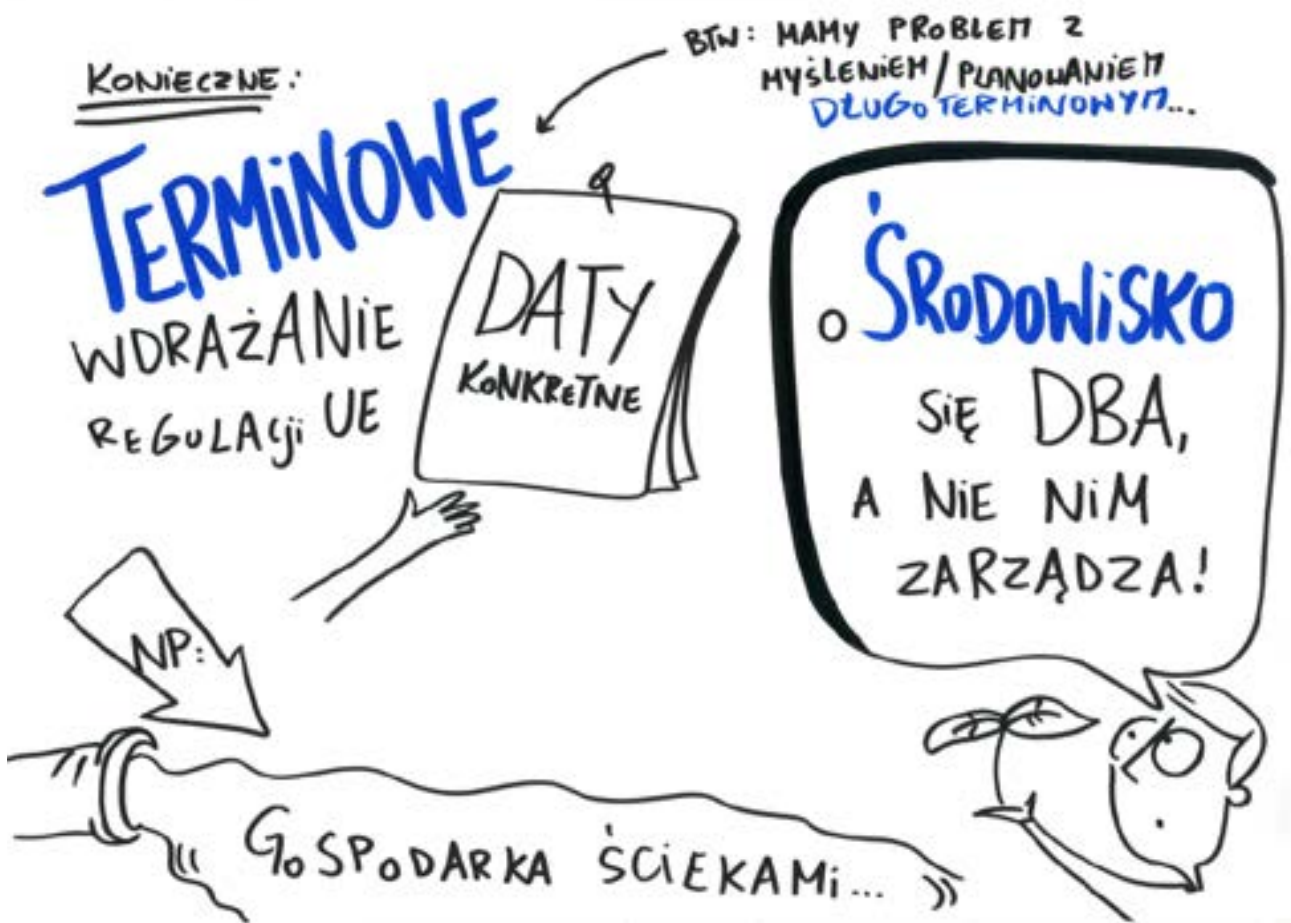 KONIECZNE:
TERMINOWE
WDRAŻANIE
REGULACji UE
BTW: MAMY PROBLEM Z
MYŚLENIEM/PLANOWANIEM
DŁUGOTERMINOWYM...
DATY
KONKRETNE
O ŚRODOWiSKO
SiĘ DBA,
A NiE NiM
ZARZĄDZA!
NP:
GOSPODARKA ŚCiEKAMi...